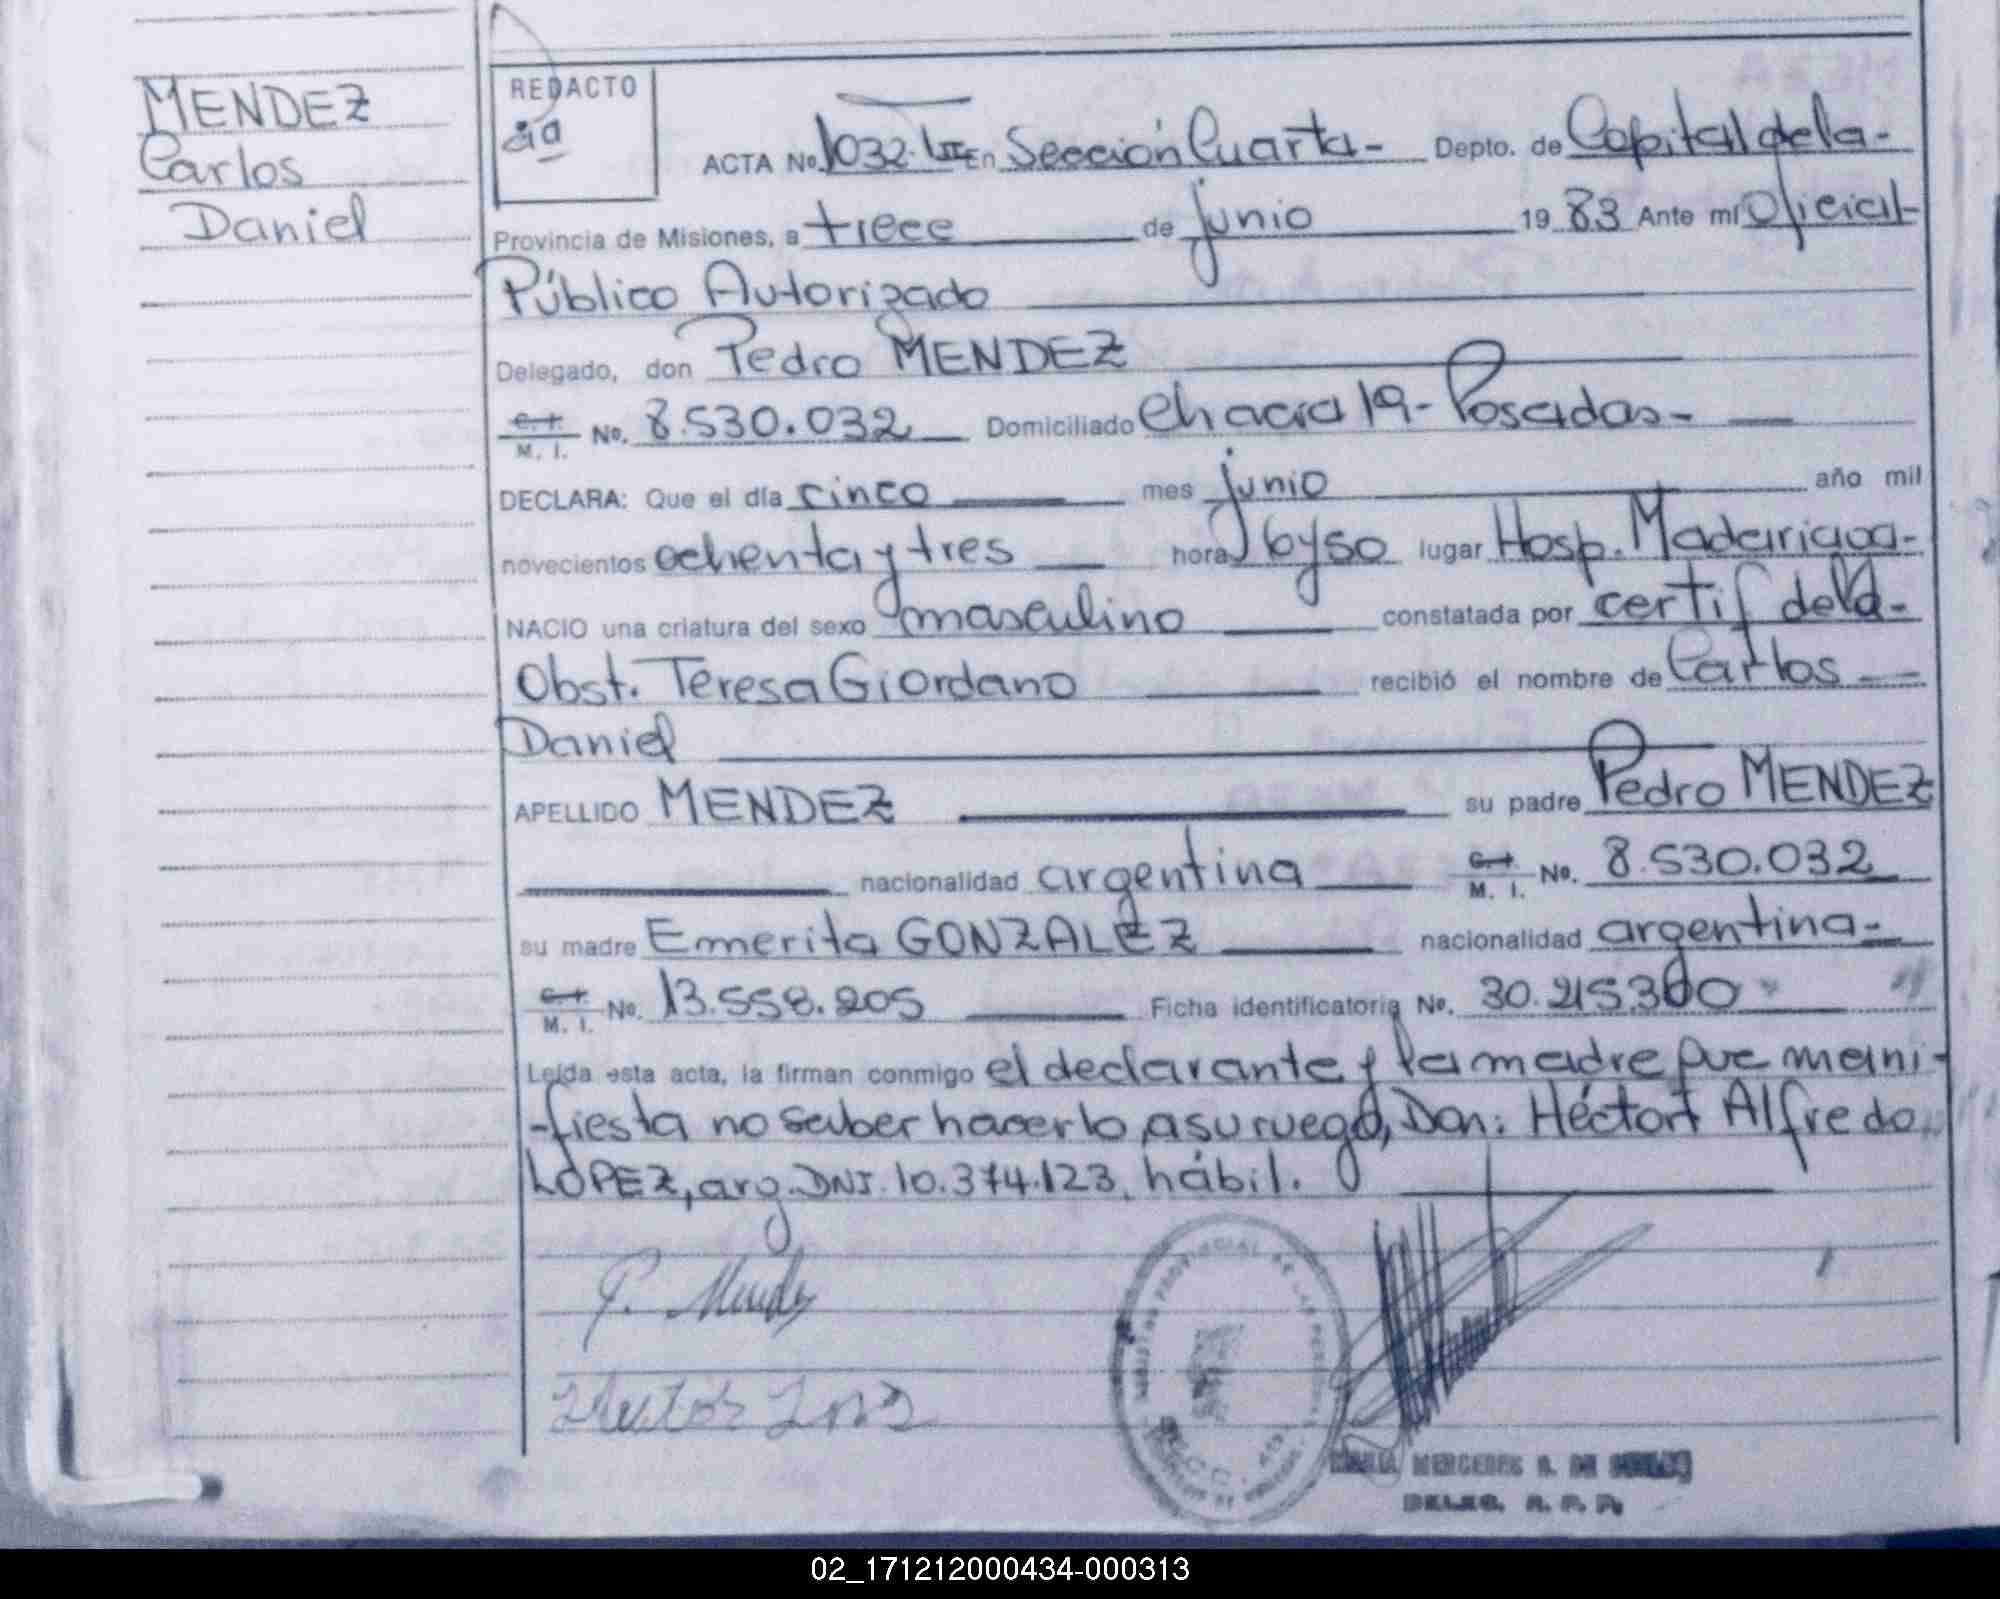 MENDEZ
Carlos
Daniel
REDACTO
ACTA No. 1032. En Sección Cuarta- Depto. de Capital de la-
Provincia de Misiones, a trece de junio 19 83 Ante mí Oficial
Público Autorizado
Delegado, don Pedro MENDEZ
C. I.
M. I. No. 8.530.032 Domiciliado Chacra 19- Posadas-
DECLARA: Que el día cinco mes junio año mil
novecientos ochenta y tres hora 16y50 lugar Hosp. Madariaga-
NACIO una criatura del sexo masculino constatada por certif de la-
Obst. Teresa Giordano recibió el nombre de Carlos
Daniel
APELLIDO MENDEZ su padre Pedro MENDEZ
nacionalidad argentina C. I. M. I. No. 8.530.032
su madre Emerita GONZALEZ nacionalidad argentina-
C. I. M. I. No. 13.558.205 Ficha identificatoria No. 30.215.300
Leída esta acta, la firman conmigo el declarante y la madre que mani-
-fiesta no saber hacerlo, a su ruego, Don: Héctor Alfredo
LOPEZ, arg. DNI. 10.374.123, hábil.
P. Mendez
MERCEDES
DELEG. R. P. P.
02_171212000434-000313